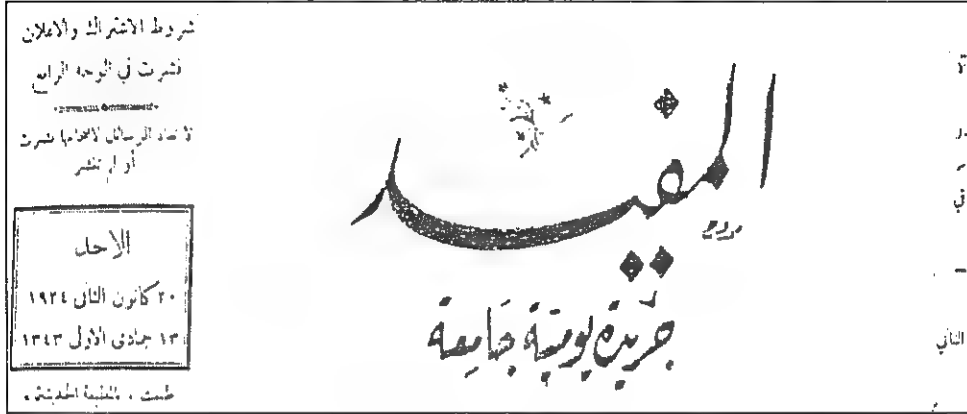 شروط الاشتراك والاعلان
نشرت في الوجه الرابع
لا تعاد الرسائل لاصحابها نشرت
أو لم تنشر
الاحد
٢٠ كانون الثاني ١٩٢٤
١٣ جمادى الاولى ١٣٤٣
طبعت بالمطبعة الحديثة
المفيد
جريدة يومية جامعة
في
الثاني